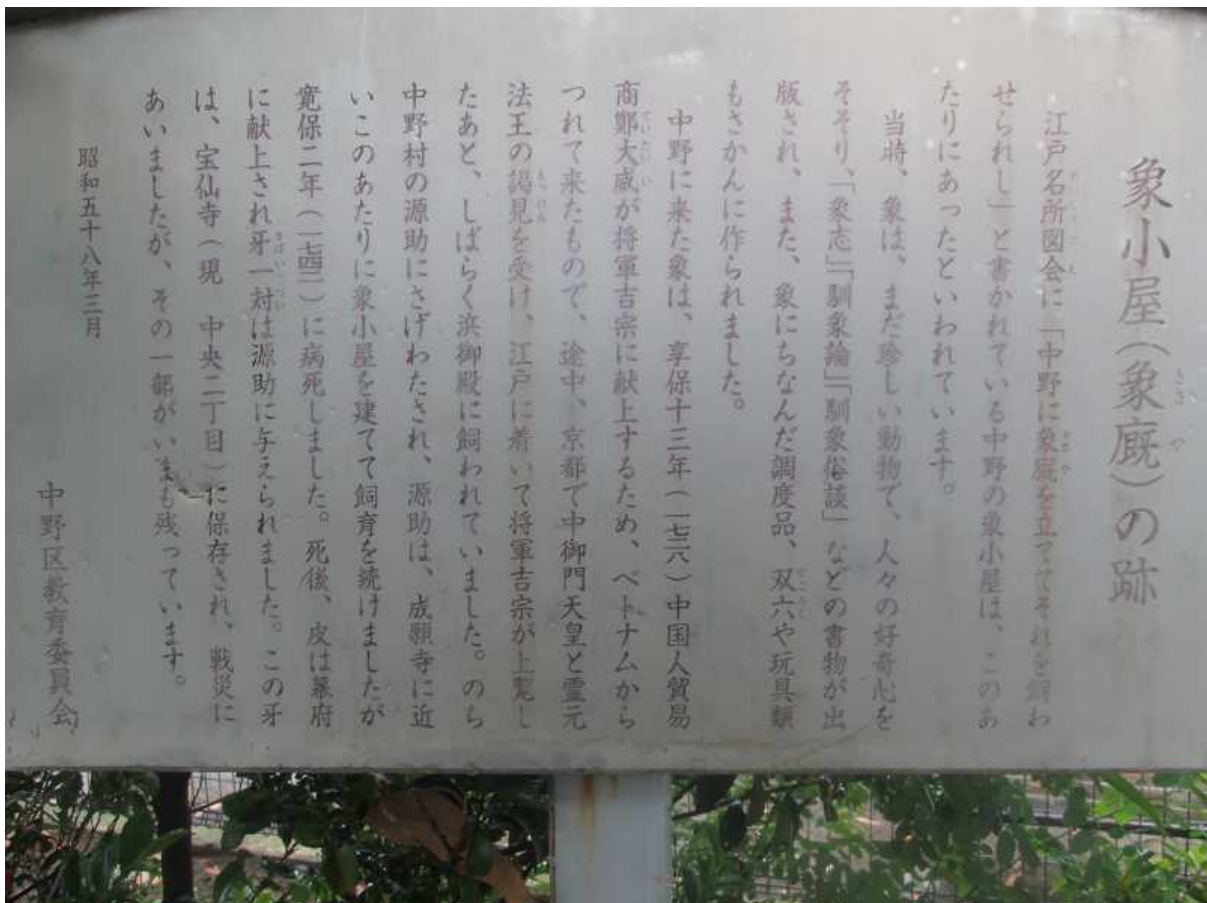 象小屋(象厩)の跡
江戸名所図会に「中野に象厩を立ててそれを飼わ
せられし」と書かれている中野の象小屋は、このあ
たりにあったといわれています。
当時、象は、まだ珍しい動物で、人々の好奇心を
そそり、「象志」「馴象論」「馴象俗談」などの書物が出
版され、また、象にちなんだ調度品、双六や玩具類
もさかんに作られました。
中野に来た象は、享保十三年(一七二八)中国人貿易
商鄭大威が将軍吉宗に献上するため、ベトナムから
つれて来たもので、途中、京都で中御門天皇と霊元
法王の謁見を受け、江戸に着いて将軍吉宗が上覧し
たあと、しばらく浜御殿に飼われていました。のち
中野村の源助にさげわたされ、源助は、成願寺に近
いこのあたりに象小屋を建てて飼育を続けましたが
寛保二年(一七四二)に病死しました。死後、皮は幕府
に献上され牙一対は源助に与えられました。この牙
は、宝仙寺(現 中央二丁目)に保存され、戦災に
あいましたが、その一部がいまも残っています。
昭和五十八年三月
中野区教育委員会